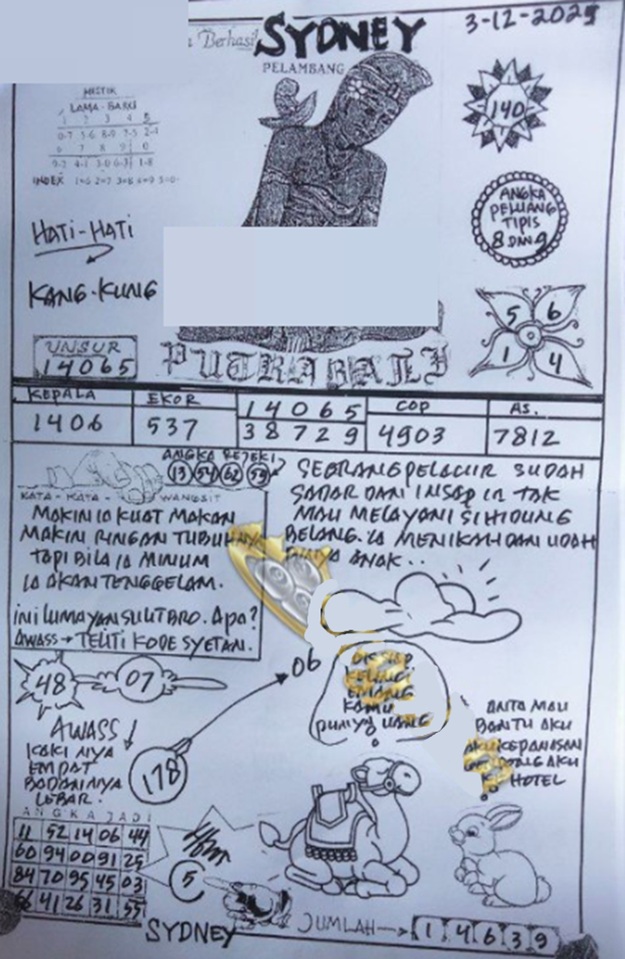 Berhasil SYDNEY 3-12-2025
PELAMBANG
MISTIK
LAMA - BARU
1 2 3 4 5
0-7 5-6 8-9 7-3 2-1
6 7 8 9 0
INDEX
140
ANGKA
PELUANG
TIPIS
8 DAN 9
HATI-HATI
KANG-KUNG
5 6
1 4
UNSUR
14065
PUTRA BALI
KEPALA EKOR 14065 COP AS.
1406 537 38729 4903 7812
ANGKA REJEKI
13 54 62 59
KATA - KATA - WANGSIT
MAKIN IA KUAT MAKAN
MAKIN RINGAN TUBUHNYA
TAPI BILA IA MINUM
IA AKAN TENGGELAM.
INI LUMAYAN SULIT BRO. Apa?
AWASS → TELITI KODE SYETAN.
SEORANG PELACUR SUDAH
SADAR DAN INSAP IA TAK
MAU MELAYANI SI HIDUNG
BELANG. IA MENIKAH DAN UDAH
PUNYA ANAK..
48 07
06
KAMU
PUNYA UANG
ANTA MAU
BANTU AKU
AKU KEPANASAN
DONG AKU
HOTEL
AWASS
KAKI NYA
EMPAT
BADANNYA
LEBAR.
178
ANGKA JADI
11 52 14 06 44
60 94 00 91 25
84 70 95 45 03
66 41 26 31 55
Hbm
5
SYDNEY
JUMLAH → 1 4 6 3 9